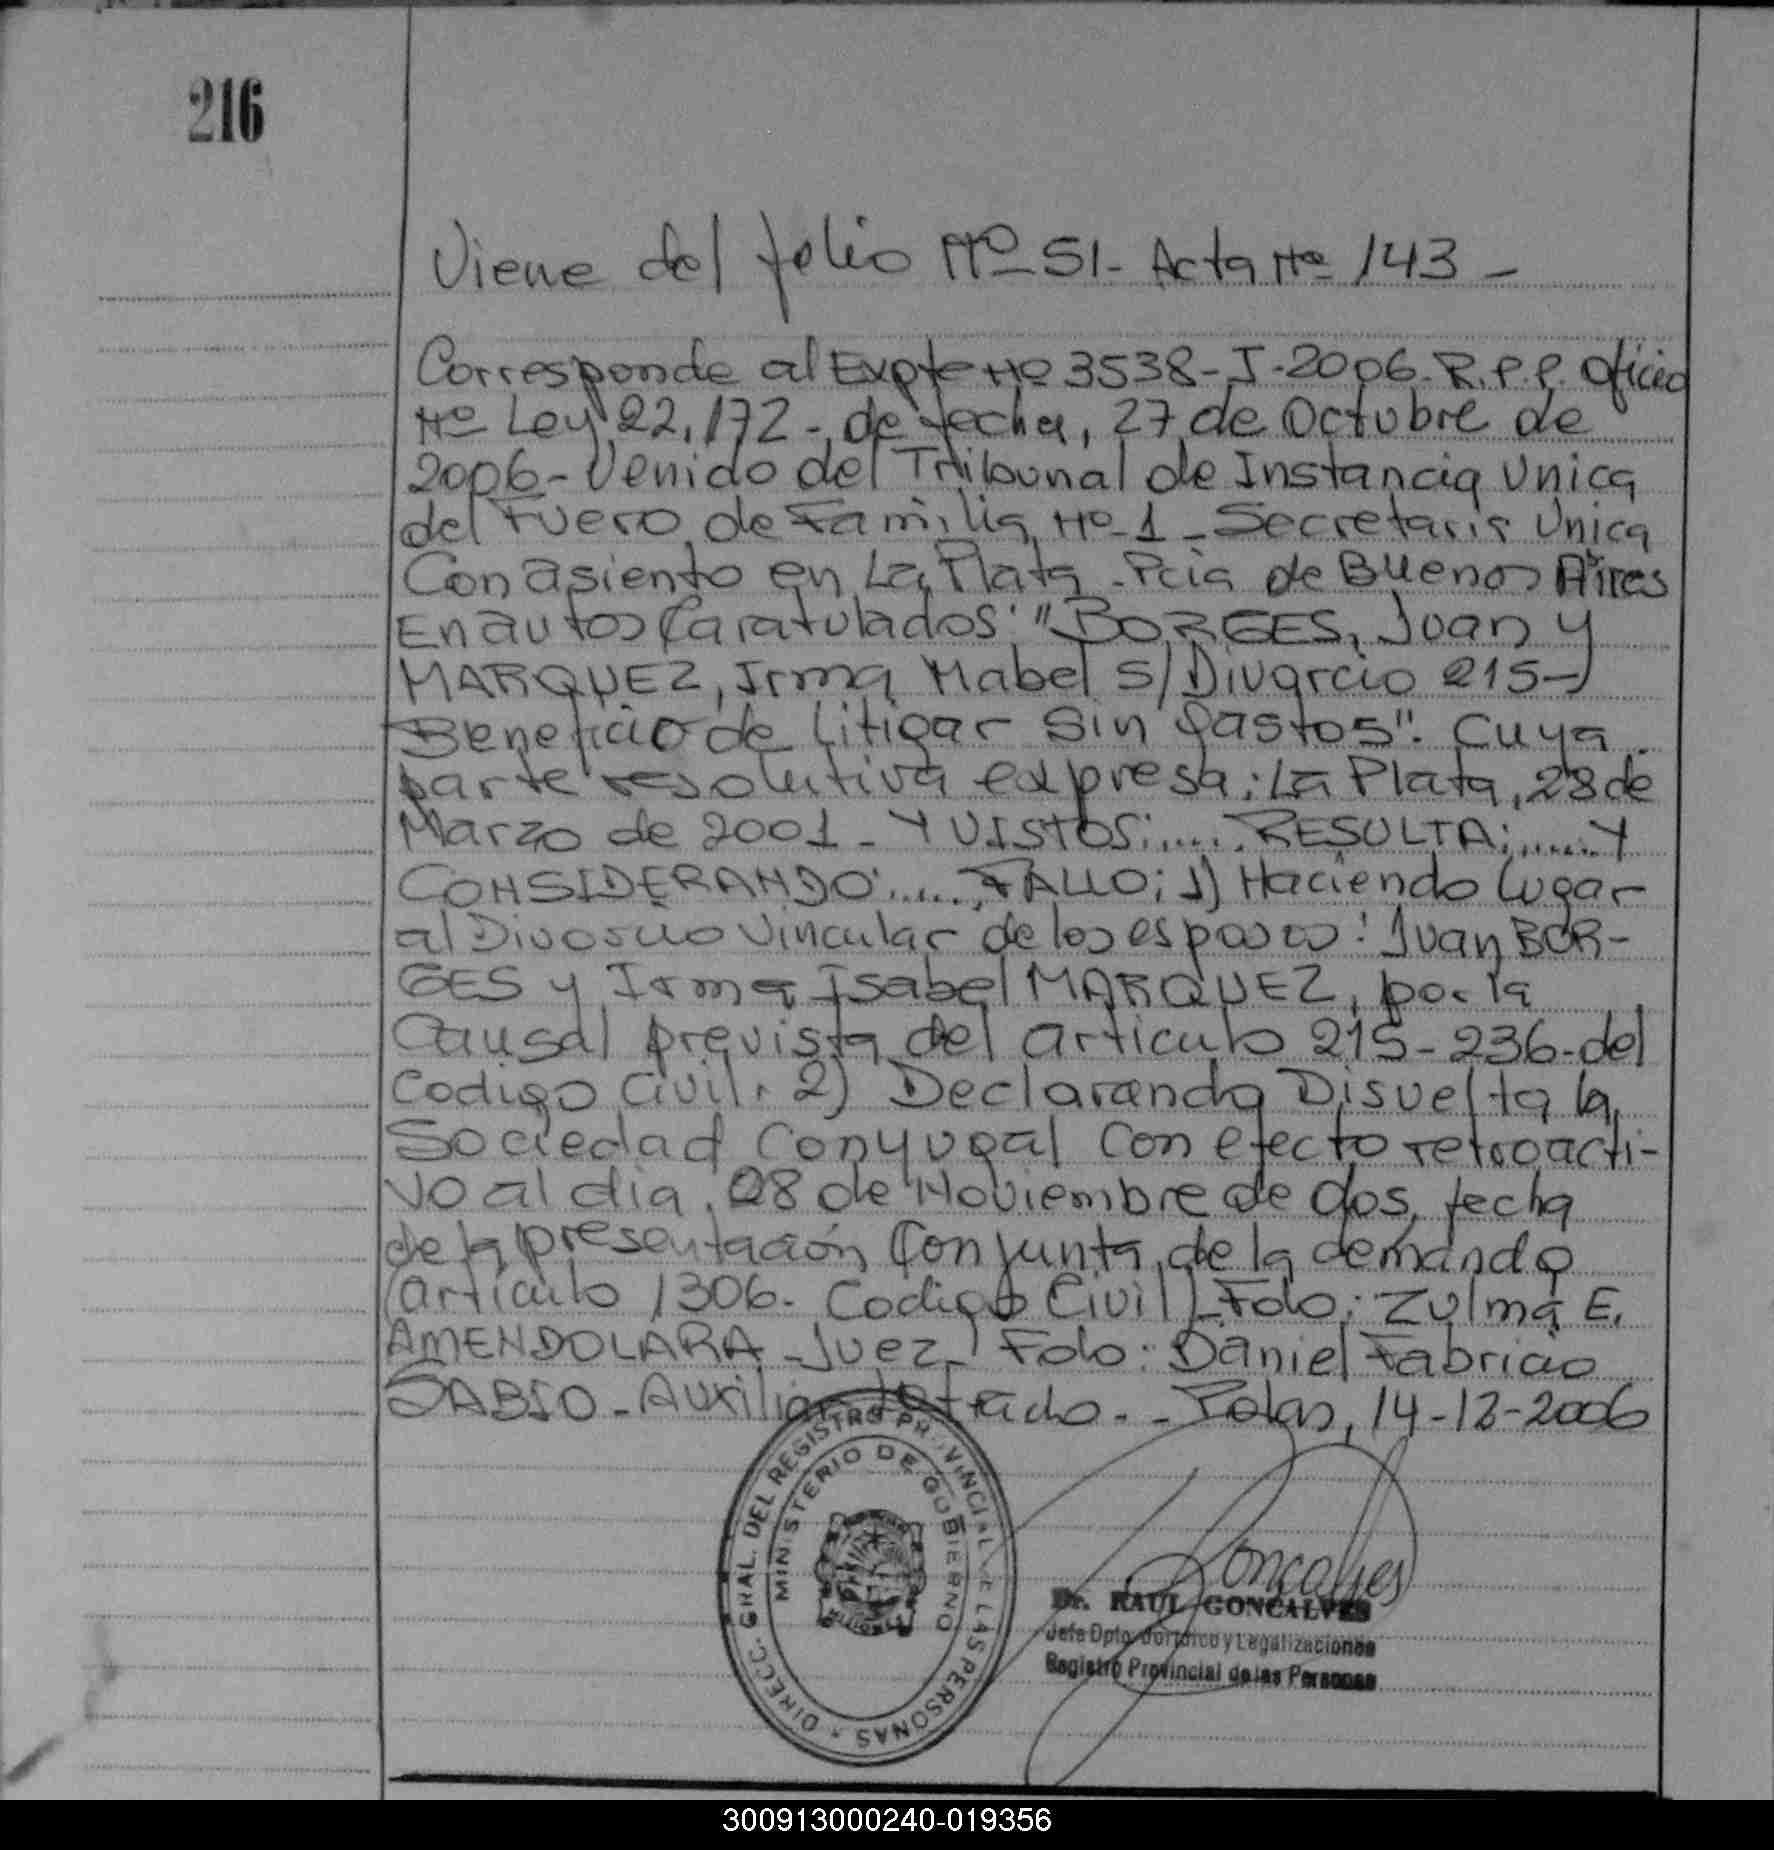 216
Viene del folio Nº 51- Acta Nº 143 -
Corresponde al Expte Nº 3538-J-2006- R.P.P. Oficio
Nº Ley 22.172-, de fecha, 27 de Octubre de
2006- Venido del Tribunal de Instancia Unica
del Fuero de Familia Nº 1 - Secretaria Unica
Con asiento en La Plata - Pcia de Buenos Aires
En autos Caratulados: "BORGES, Juan y
MARQUEZ, Irma Mabel s/ Divorcio 215-
Beneficio de Litigar Sin Gastos". Cuya
parte resolutiva expresa: La Plata, 28 de
Marzo de 2001 - Y VISTOS:..... RESULTA:...... Y
CONSIDERANDO:..... FALLO: 1) Haciendo lugar
al Divorcio Vincular de los esposos: Juan BOR-
GES y Irma Isabel MARQUEZ, por la
Causal prevista del articulo 215-236-del
Codigo Civil. 2) Declarando Disuelta la
Sociedad Conyugal Con efecto retroacti-
vo al dia, 28 de Noviembre de dos, fecha
de la presentación Conjunta de la demanda
(articulo 1306- Codigo Civil)- Fdo: Zulma E.
AMENDOLARA - Juez - Fdo: Daniel Fabricio
SABIO - Auxiliar letrado. - Pdas, 14-12-2006
DIRECC. GRAL. DEL REGISTRO PROVINCIAL DE LAS PERSONAS
MINISTERIO DE GOBIERNO
MISIONES
Goncalves
Dr. RAUL GONCALVES
Jefe Dpto. Jurídico y Legalizaciones
Registro Provincial de las Personas
300913000240-019356